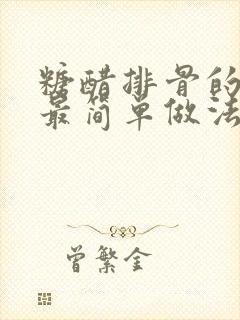 糖醋排骨的
最简单做法
曾繁金